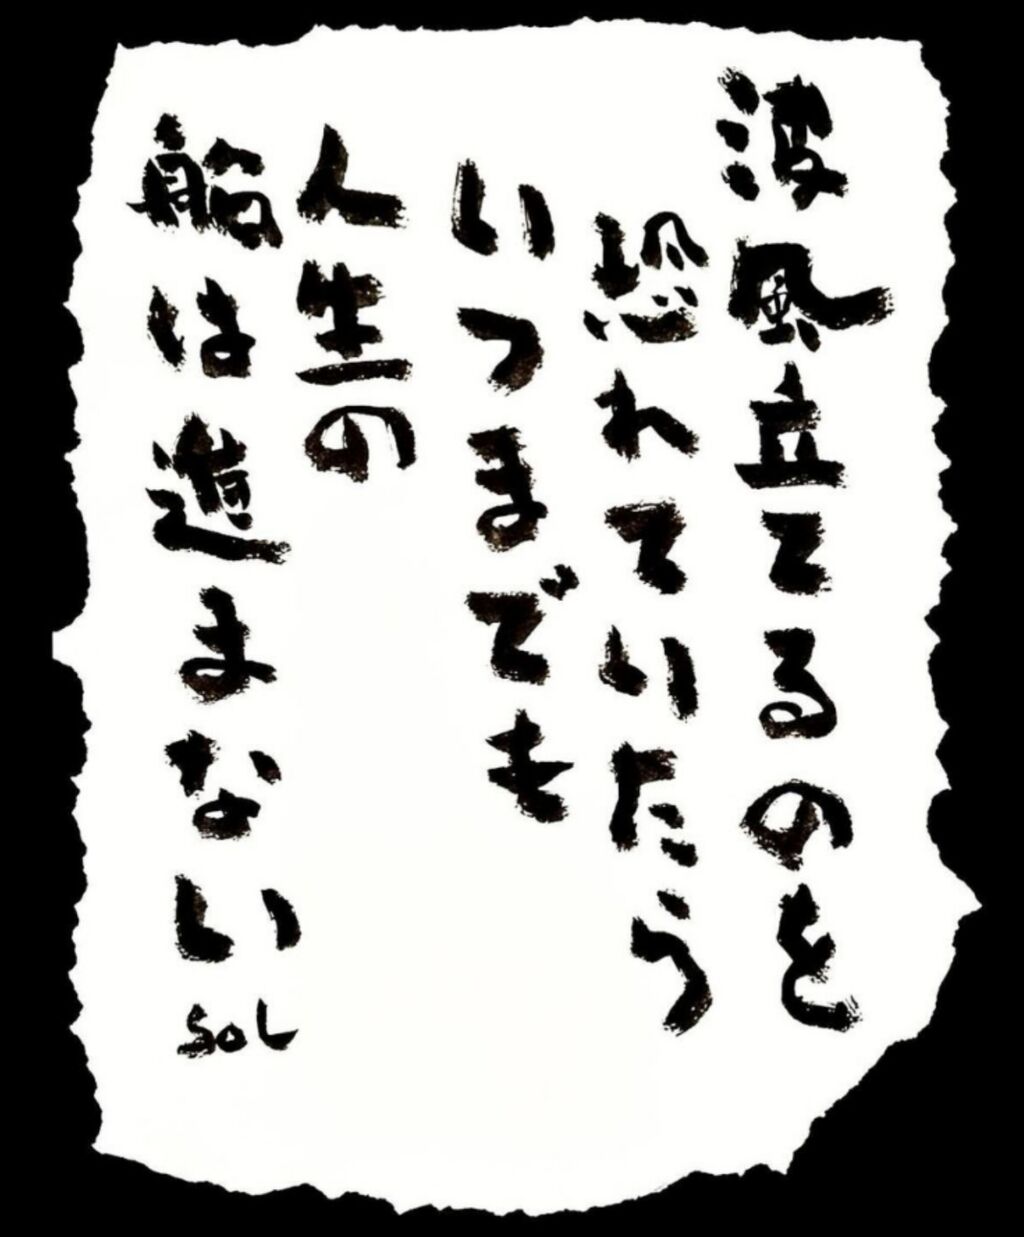 波風立てるのを
恐れていたら
いつまでも
人生の
船は進まない
SOL